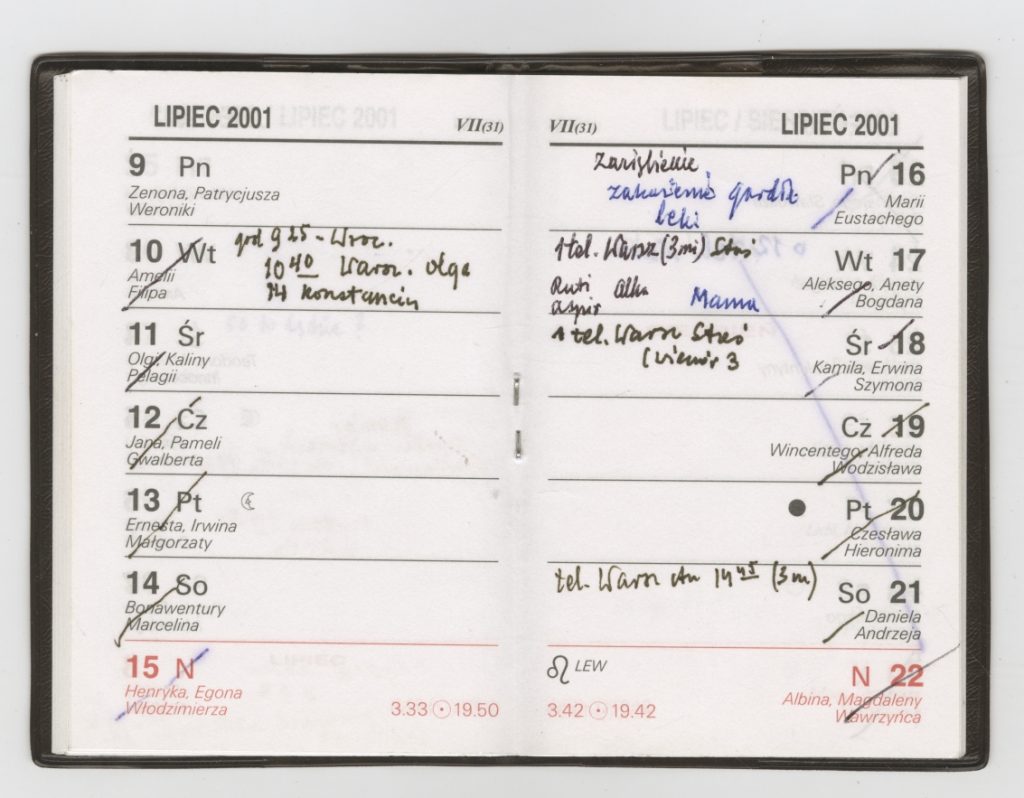 LIPIEC 2001
VII(31)
9 Pn
Zenona, Patrycjusza
Weroniki
10 Wt
Amelii
Filipa
god 9 25 - Wroc.
10 40 Warsz. Olga
14 Konstancin
11 Śr
Olgi, Kaliny
Pelagii
12 Cz
Jana, Pameli
Gwalberta
13 Pt
Ernesta, Irwina
Małgorzaty
14 So
Bonawentury
Marcelina
15 N
Henryka, Egona
Włodzimierza
3.33 19.50
VII(31)
LIPIEC 2001
Pn 16
Marii
Eustachego
zakażenie gardła
leki
Wt 17
Aleksego, Anety
Bogdana
1 tel. Warsz (3 mi) Staś
Alka Mama
Śr 18
Kamila, Erwina
Szymona
1 tel. Warsz Staś
3
Cz 19
Wincentego, Alfreda
Wodzisława
Pt 20
Czesława
Hieronima
So 21
Daniela
Andrzeja
tel. Warsz 14 45 (3 m)
LEW
N 22
Albina, Magdaleny
Wawrzyńca
3.42 19.42